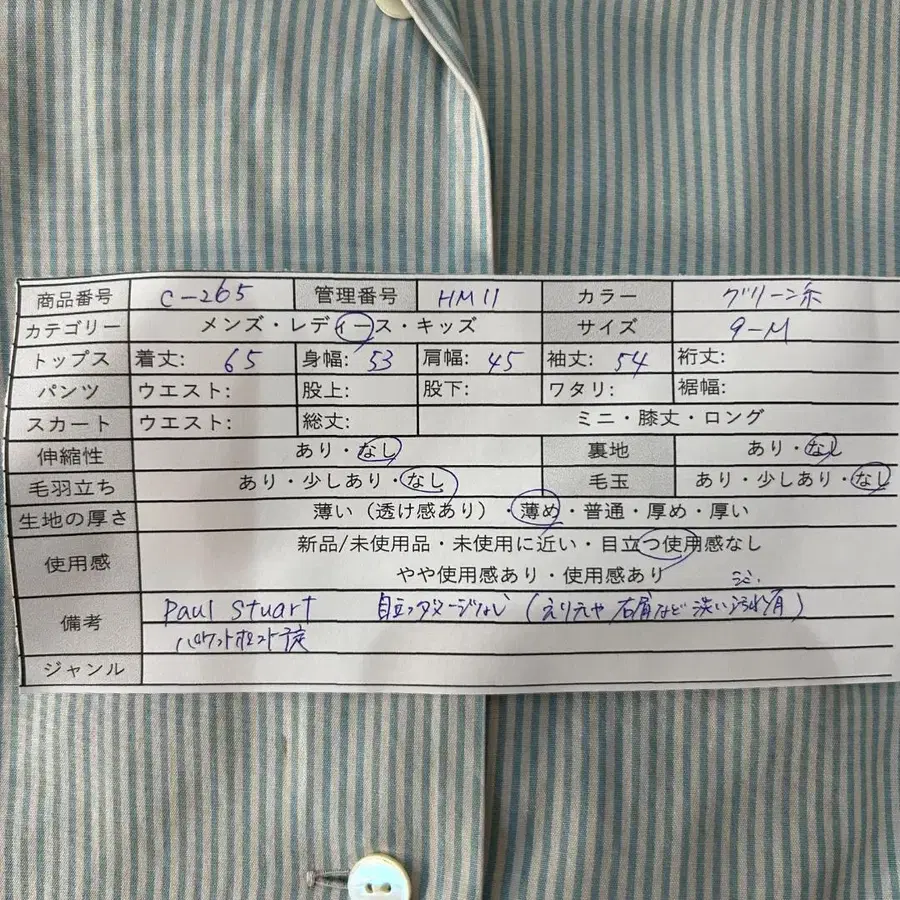 商品番号 C-265 管理番号 HM11 カラー グリーン系
カテゴリー メンズ・レディース・キッズ サイズ 9-M
トップス 着丈: 65 身幅: 53 肩幅: 45 袖丈: 54 裄丈:
パンツ ウエスト: 股上: 股下: ワタリ: 裾幅:
スカート ウエスト: 総丈: ミニ・膝丈・ロング
伸縮性 あり・なし 裏地 あり・なし
毛羽立ち あり・少しあり・なし 毛玉 あり・少しあり・なし
生地の厚さ 薄い(透け感あり)・薄め・普通・厚め・厚い
使用感 新品/未使用品・未使用に近い・目立つ使用感なし
やや使用感あり・使用感あり
備考 Paul Stuart 目立つダメージなし (えりえや 右肩など 汚れ有)
ジャンル